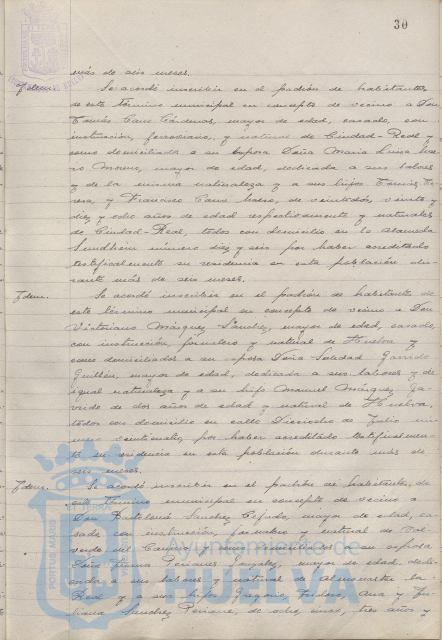 30
más de seis meses.
Idem. Se acordó inscribir en el padrón de habitantes
de este término municipal en concepto de vecino a Don
Tomás Cano Cárdenas, mayor de edad, casado, con
instrucción, ferroviario, y natural de Ciudad-Real y
como domiciliada a su esposa Doña María Luisa
Moreno, mayor de edad, dedicada a sus labores
y de la misma naturaleza y a sus hijos Tomás,
y Francisco Cano de veintidós, veinte y
diez y ocho años de edad respectivamente y naturales
de Ciudad-Real, todos con domicilio en la Alameda
Sundheim número diez y seis por haber acreditado
testificalmente su residencia en esta población du-
rante más de seis meses.
Idem. Se acordó inscribir en el padrón de habitantes de
este término municipal en concepto de vecino a Don
Victoriano Márquez Sanchez, mayor de edad, casado,
con instrucción, jornalero y natural de Huelva y
como domiciliados a su esposa Doña Soledad Garrido
Guillén, mayor de edad, dedicada a sus labores y de
igual naturaleza y a su hijo Manuel Márquez Ga-
rrido de dos años de edad y natural de Huelva,
todos con domicilio en calle Dieciocho de Julio nú-
mero veinticuatro, por haber acreditado testificalmen-
te su residencia en esta población durante más de
seis meses.
Idem. Se acordó inscribir en el padrón de habitantes, de
este término municipal en concepto de vecino a
Don Bartolomé Sanchez mayor de edad, ca-
sado con instrucción, jornalero y natural de Val-
verde del Camino y como domiciliados a su esposa
Doña mayor de edad, dedi-
cada a sus labores y natural de Almonaster la
Real y a sus hijos Gregorio, Ana y Ju-
liana Sanchez de ocho, cinco, tres años y
Ayuntamiento de
HUELVA
PORTUS MARIS